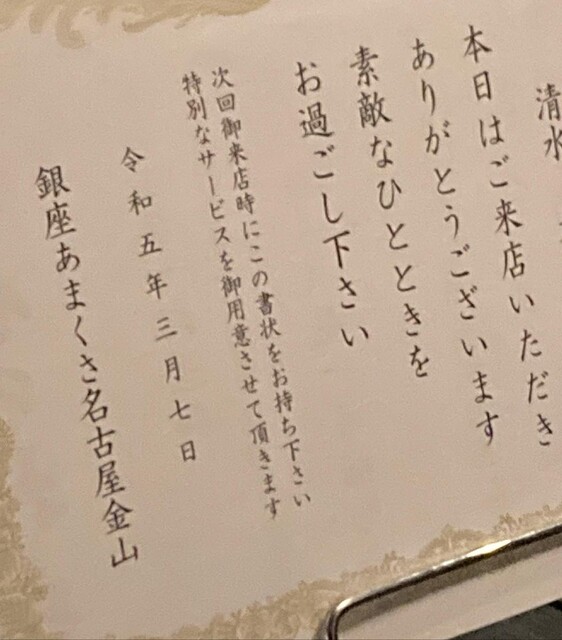 清水
本日はご来店いただき
ありがとうございます
素敵なひとときを
お過ごし下さい
次回御来店時にこの書状をお持ち下さい
特別なサービスを御用意させて頂きます
令和五年三月七日
銀座あまくさ名古屋金山